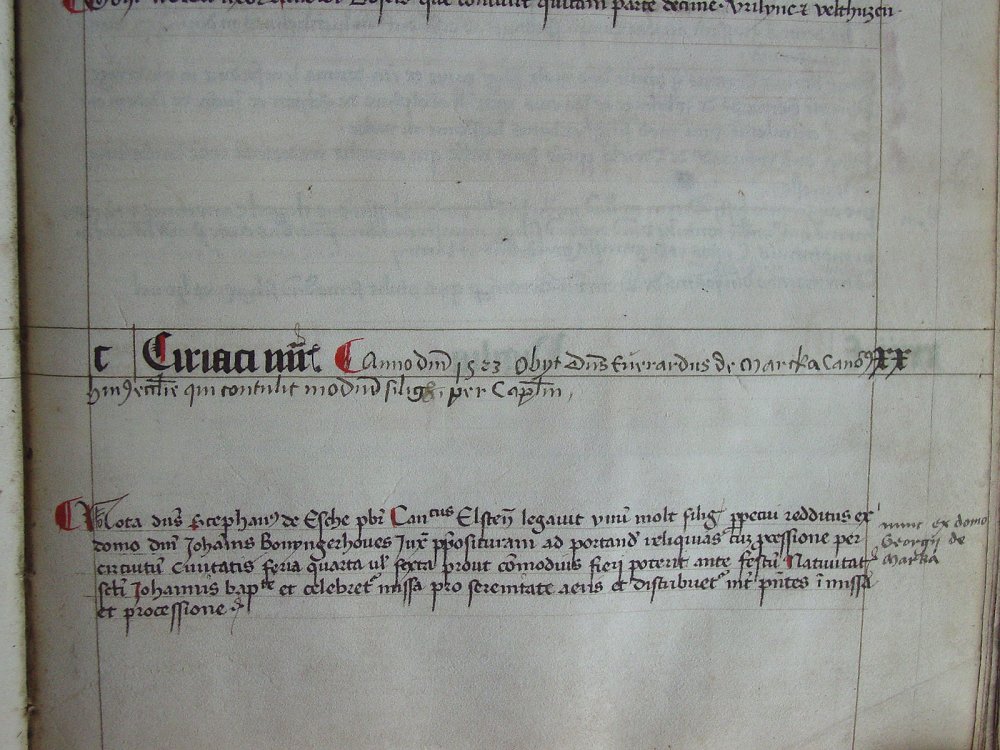 que contulit quitam parte decime. Vrilync z velthuzen.
c Ciriaci mr̄ Anno dm̄ 1523 Obyt Dn̄s Euerardus de Marcka Cano⁹ XX
hui⁹ eccl̄ie qui contulit modiū siliḡ per Capl̄m,
Nota dn̄s Stephan⁹ de Esche pb̄r Cantus Elsten̄ legauit vnū molt siliḡ ꝑpetui redditus ex
domo dn̄i Johan̄is Bouyngerhoues Juxͣ p̄posituram ad portand̄ reliquias cū ꝓcessione per
circuitū Ciuitatis feria quarta ul̄ sexta prout cōmodius fieri poterit ante festū Natiuitat̄
scti Johannis bapte et celebret̄ missa pro serenitate aeris et distribuet̄ int̄ pn̄tes ī missa
et processione
nunc ex domo
Georgij de
Marcka